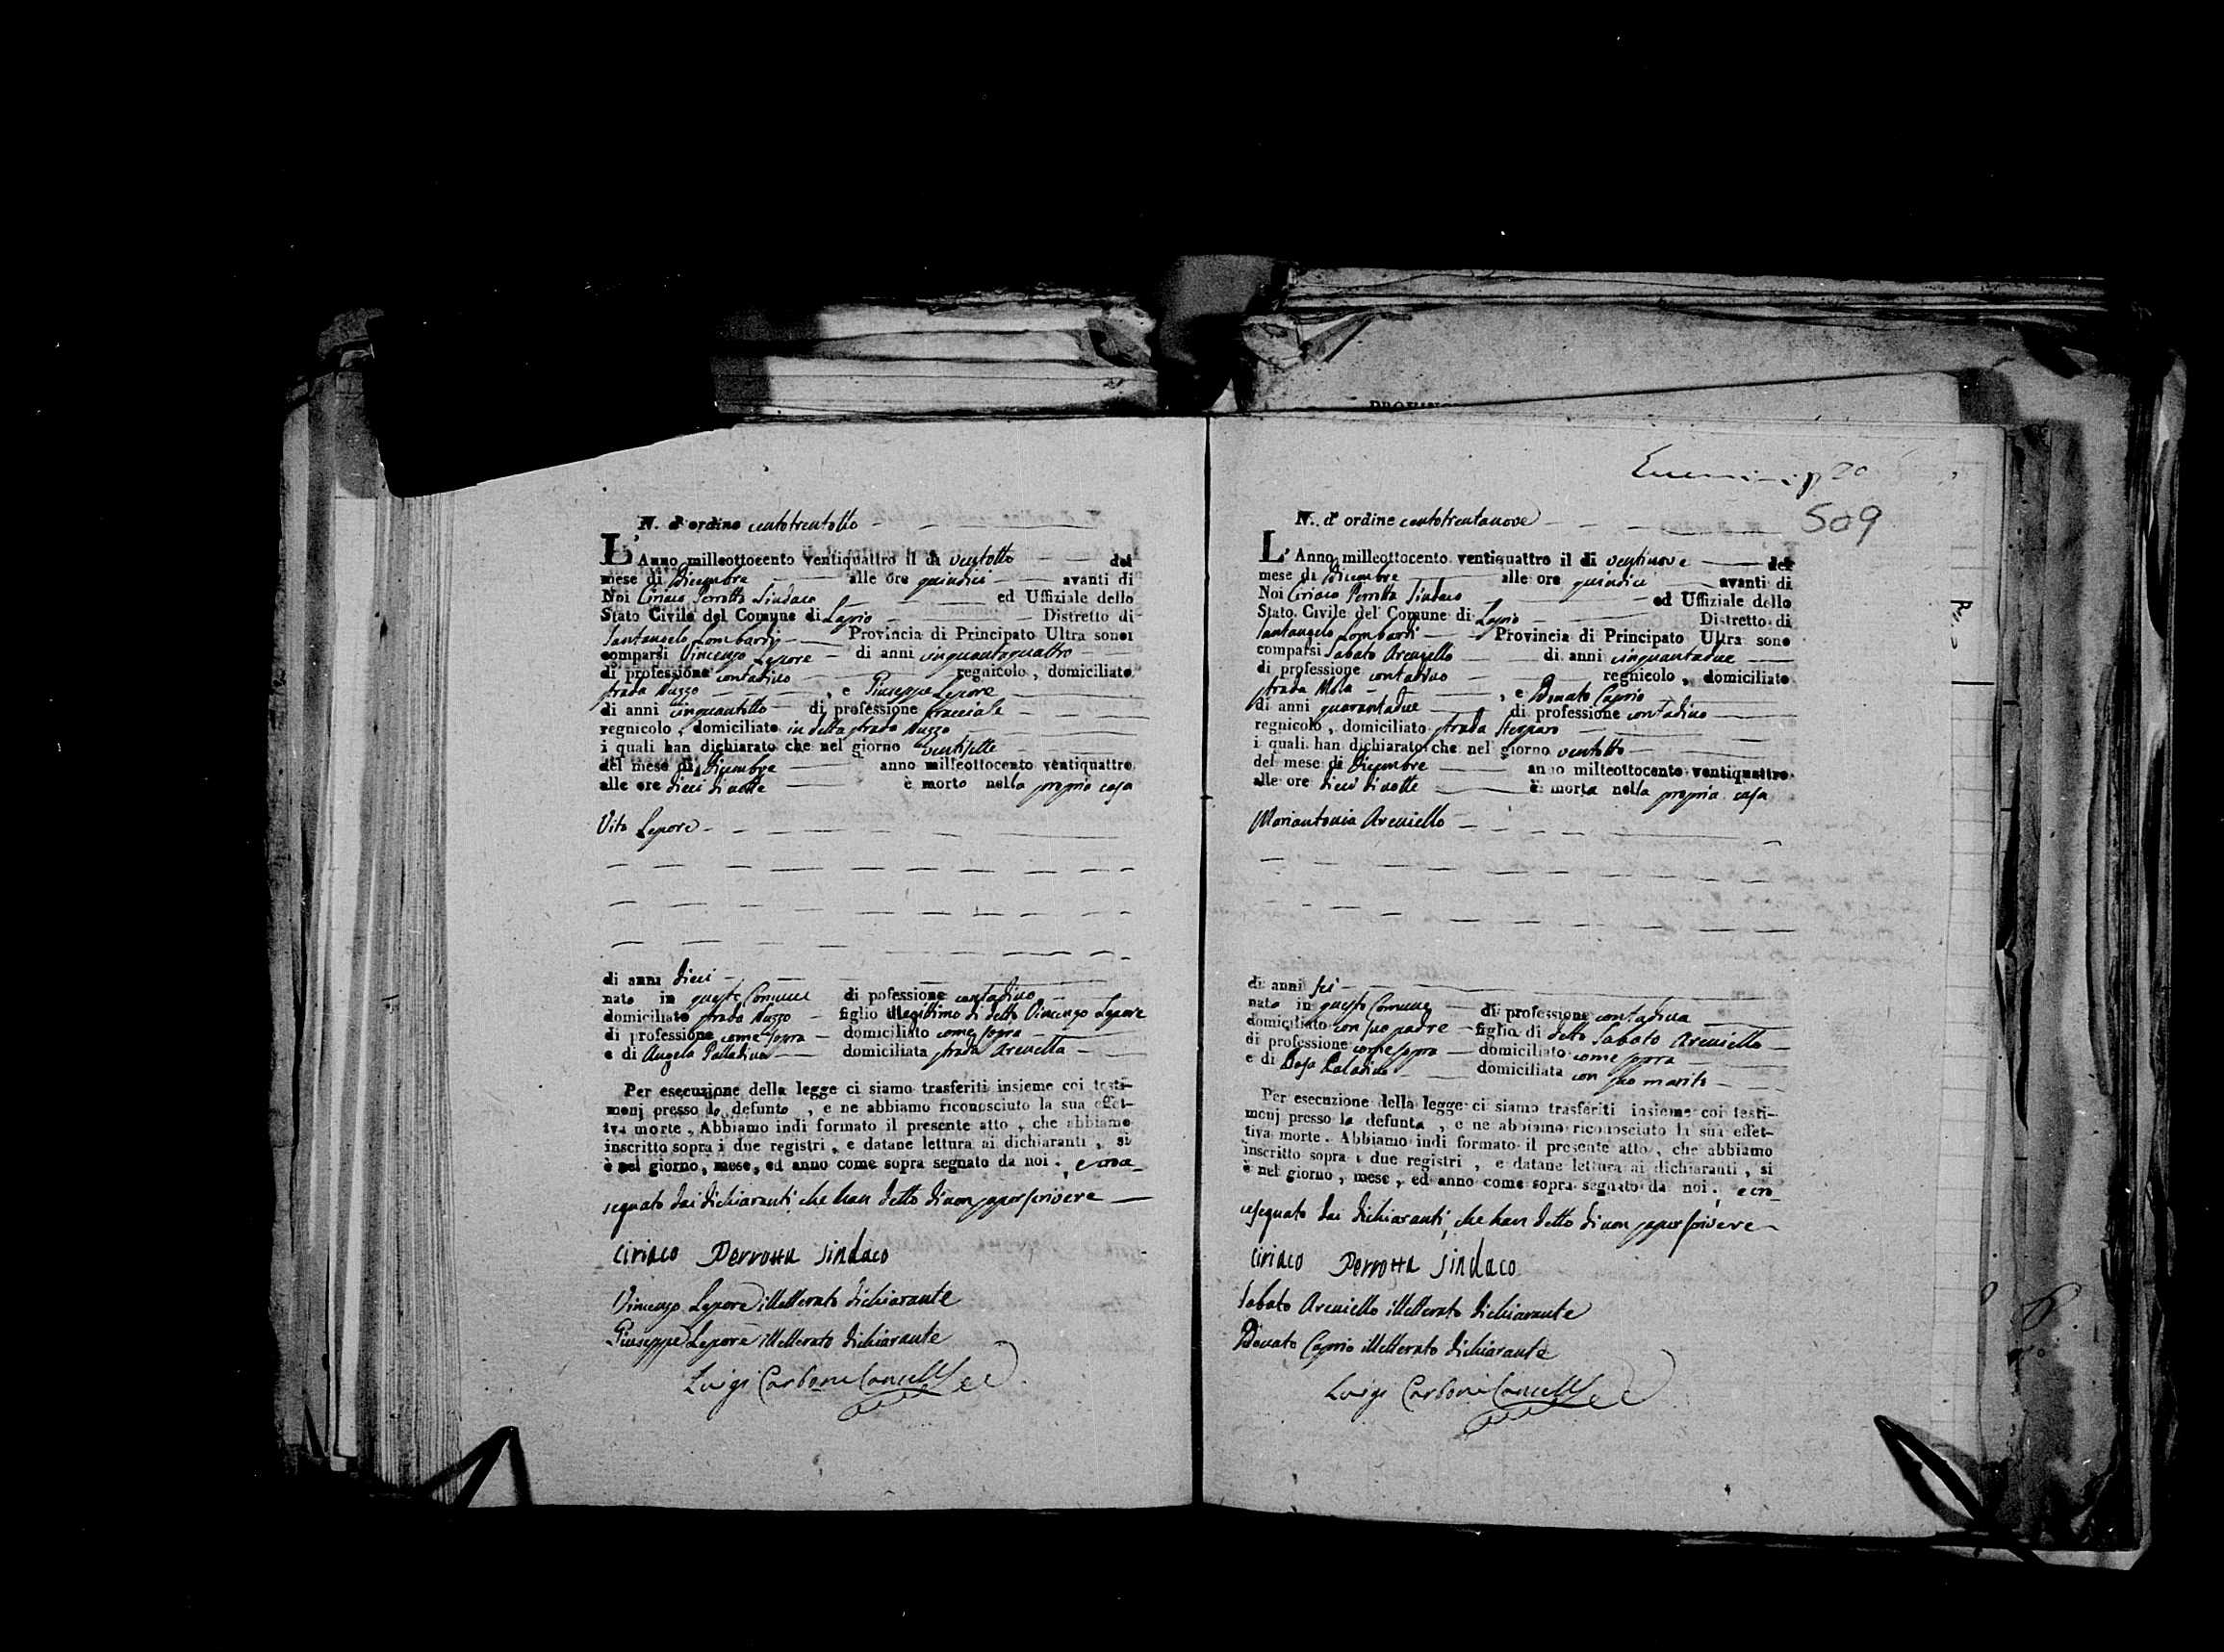 N. d'ordine centotrentotto
L'Anno milleottocento ventiquattro il dì ventotto del
mese di Dicembre alle ore quindici avanti di
Noi Ciriaco Perrotta Sindaco ed Uffiziale dello
Stato Civile del Comune di Lapio Distretto di
Santangelo Lombardi Provincia di Principato Ultra sono
comparsi Vincenzo Lepore di anni cinquantaquattro
di professione contadino regnicolo, domiciliato
strada Nuzzo, e Giuseppe Lepore
di anni cinquantotto di professione bracciale
regnicolo, domiciliato in detta strada Nuzzo
i quali han dichiarato che nel giorno ventisette
del mese di Dicembre anno milleottocento ventiquattro
alle ore dieci di notte è morto nella propria casa
Vito Lepore
di anni dieci
nato in questo Comune di pofessione contadino
domiciliato strada Nuzzo figlio illegittimo di detto Vincenzo Lepore
di professione come sopra domiciliato come sopra
e di Angela Palladino domiciliata strada Arenella
Per esecuzione della legge ci siamo trasferiti insieme coi testi-
monj presso lo defunto, e ne abbiamo riconosciuto la sua effet-
tiva morte. Abbiamo indi formato il presente atto, che abbiamo
inscritto sopra i due registri, e datane lettura ai dichiaranti, si
è nel giorno, mese, ed anno come sopra segnato da noi, e croce
segnato dai dichiaranti che han detto di non saper scrivere
Ciriaco Perrotta Sindaco
Vincenzo Lepore illetterato dichiarante
Giuseppe Lepore illetterato dichiarante
Luigi Carboni Cancell
PROVINC
20
509
N. d'ordine centotrentanove
L'Anno milleottocento ventiquattro il di ventinove del
mese di Dicembre alle ore quindici avanti di
Noi Ciriaco Perrotta Sindaco ed Uffiziale dello
Stato Civile del Comune di Lapio Distretto di
Santangelo Lombardi Provincia di Principato Ultra sono
comparsi Sabato Areniello di anni cinquantadue
di professione contadino regnicolo, domiciliato
strada Mola, e Donato Caprio
di anni quarantadue di professione contadino
regnicolo, domiciliato strada
i quali han dichiarato che nel giorno ventotto
del mese di Dicembre anno milleottocento ventiquattro
alle ore dieci di notte è morta nella propria casa
Mariantonia Areniello
di anni sei
nato in questo Comune di professione contadina
domiciliato con suo padre figlia di detto Sabato Areniello
di professione come sopra domiciliato come sopra
e di Rosa Paladino domiciliata con suo marito
Per esecuzione della legge ci siamo trasferiti insieme coi testi-
monj presso la defunta, e ne abbiamo riconosciuto la sua effet-
tiva morte. Abbiamo indi formato il presente atto, che abbiamo
inscritto sopra i due registri, e datane lettura ai dichiaranti, si
è nel giorno, mese, ed anno come sopra segnato da noi, e cro
cesegnato dai dichiaranti, che han detto di non saper scrivere
Ciriaco Perrotta Sindaco
Sabato Areniello illetterato dichiarante
Donato Caprio illetterato dichiarante
Luigi Carboni Cancell